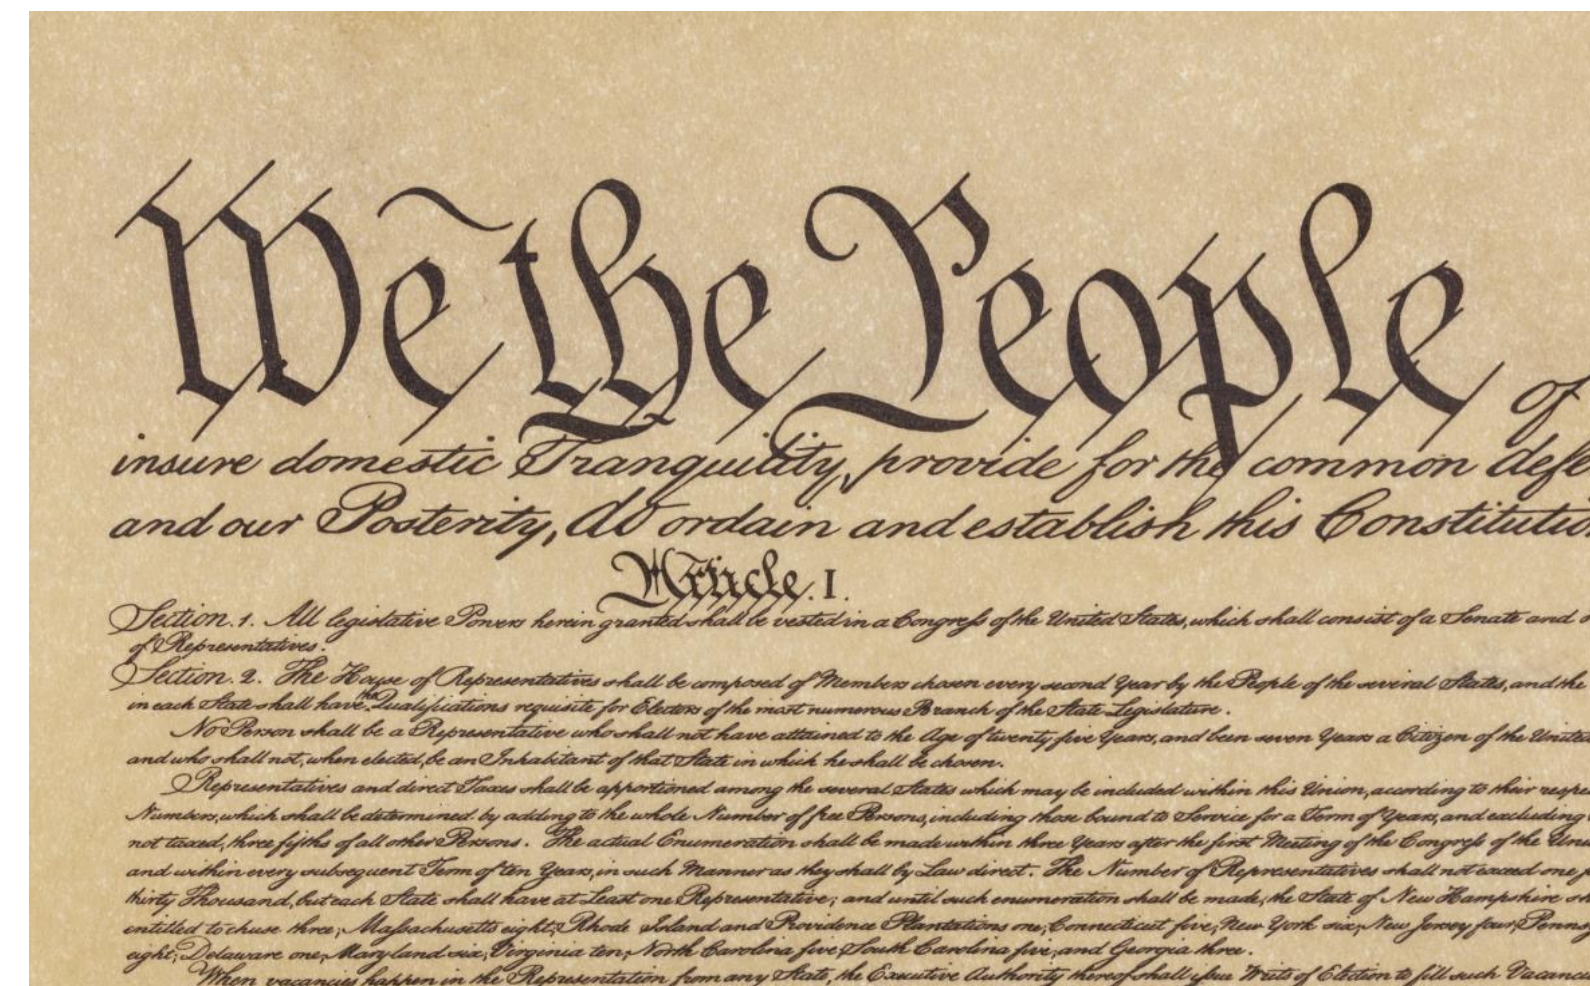 We the People of
insure domestic Tranquility, provide for the common defe
and our Posterity, do ordain and establish this Constitutio
Article. I.
Section. 1. All legislative Powers herein granted shall be vested in a Congress of the United States, which shall consist of a Senate and
of Representatives.
Section. 2. The House of Representatives shall be composed of Members chosen every second Year by the People of the several States, and the
in each State shall have the Qualifications requisite for Electors of the most numerous Branch of the State Legislature.
No Person shall be a Representative who shall not have attained to the Age of twenty five Years, and been seven Years a Citizen of the United
and who shall not, when elected, be an Inhabitant of that State in which he shall be chosen.
Representatives and direct Taxes shall be apportioned among the several States which may be included within this Union, according to their respe
Numbers, which shall be determined by adding to the whole Number of free Persons, including those bound to Service for a Term of Years, and excluding
not taxed, three fifths of all other Persons. The actual Enumeration shall be made within three Years after the first Meeting of the Congress of the Uni
and within every subsequent Term of ten Years, in such Manner as they shall by Law direct. The Number of Representatives shall not exceed one
thirty Thousand, but each State shall have at Least one Representative; and until such enumeration shall be made, the State of New Hampshire sh
entitled to chuse three, Massachusetts eight, Rhode Island and Providence Plantations one, Connecticut five, New York six, New Jersey four, Penns
eight, Delaware one, Maryland six, Virginia ten, North Carolina five, South Carolina five, and Georgia three.
When vacancies happen in the Representation from any State, the Executive Authority thereof shall issue Writs of Election to fill such Vacanci